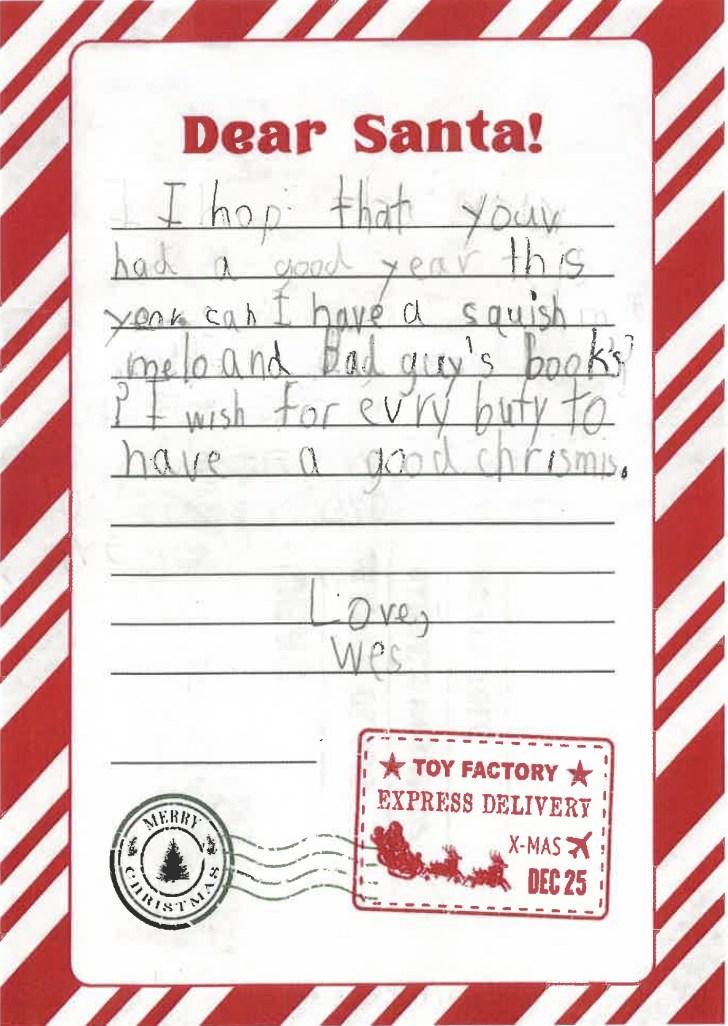 Dear Santa!
I hop that youv
had a good year this
year can I have a squish
melo and Bad guy's book's?
? I wish for evry buty to
have a good chrismis.
Love,
Wes
TOY FACTORY
EXPRESS DELIVERY
X-MAS
DEC 25
MERRY
CHRISTMAS